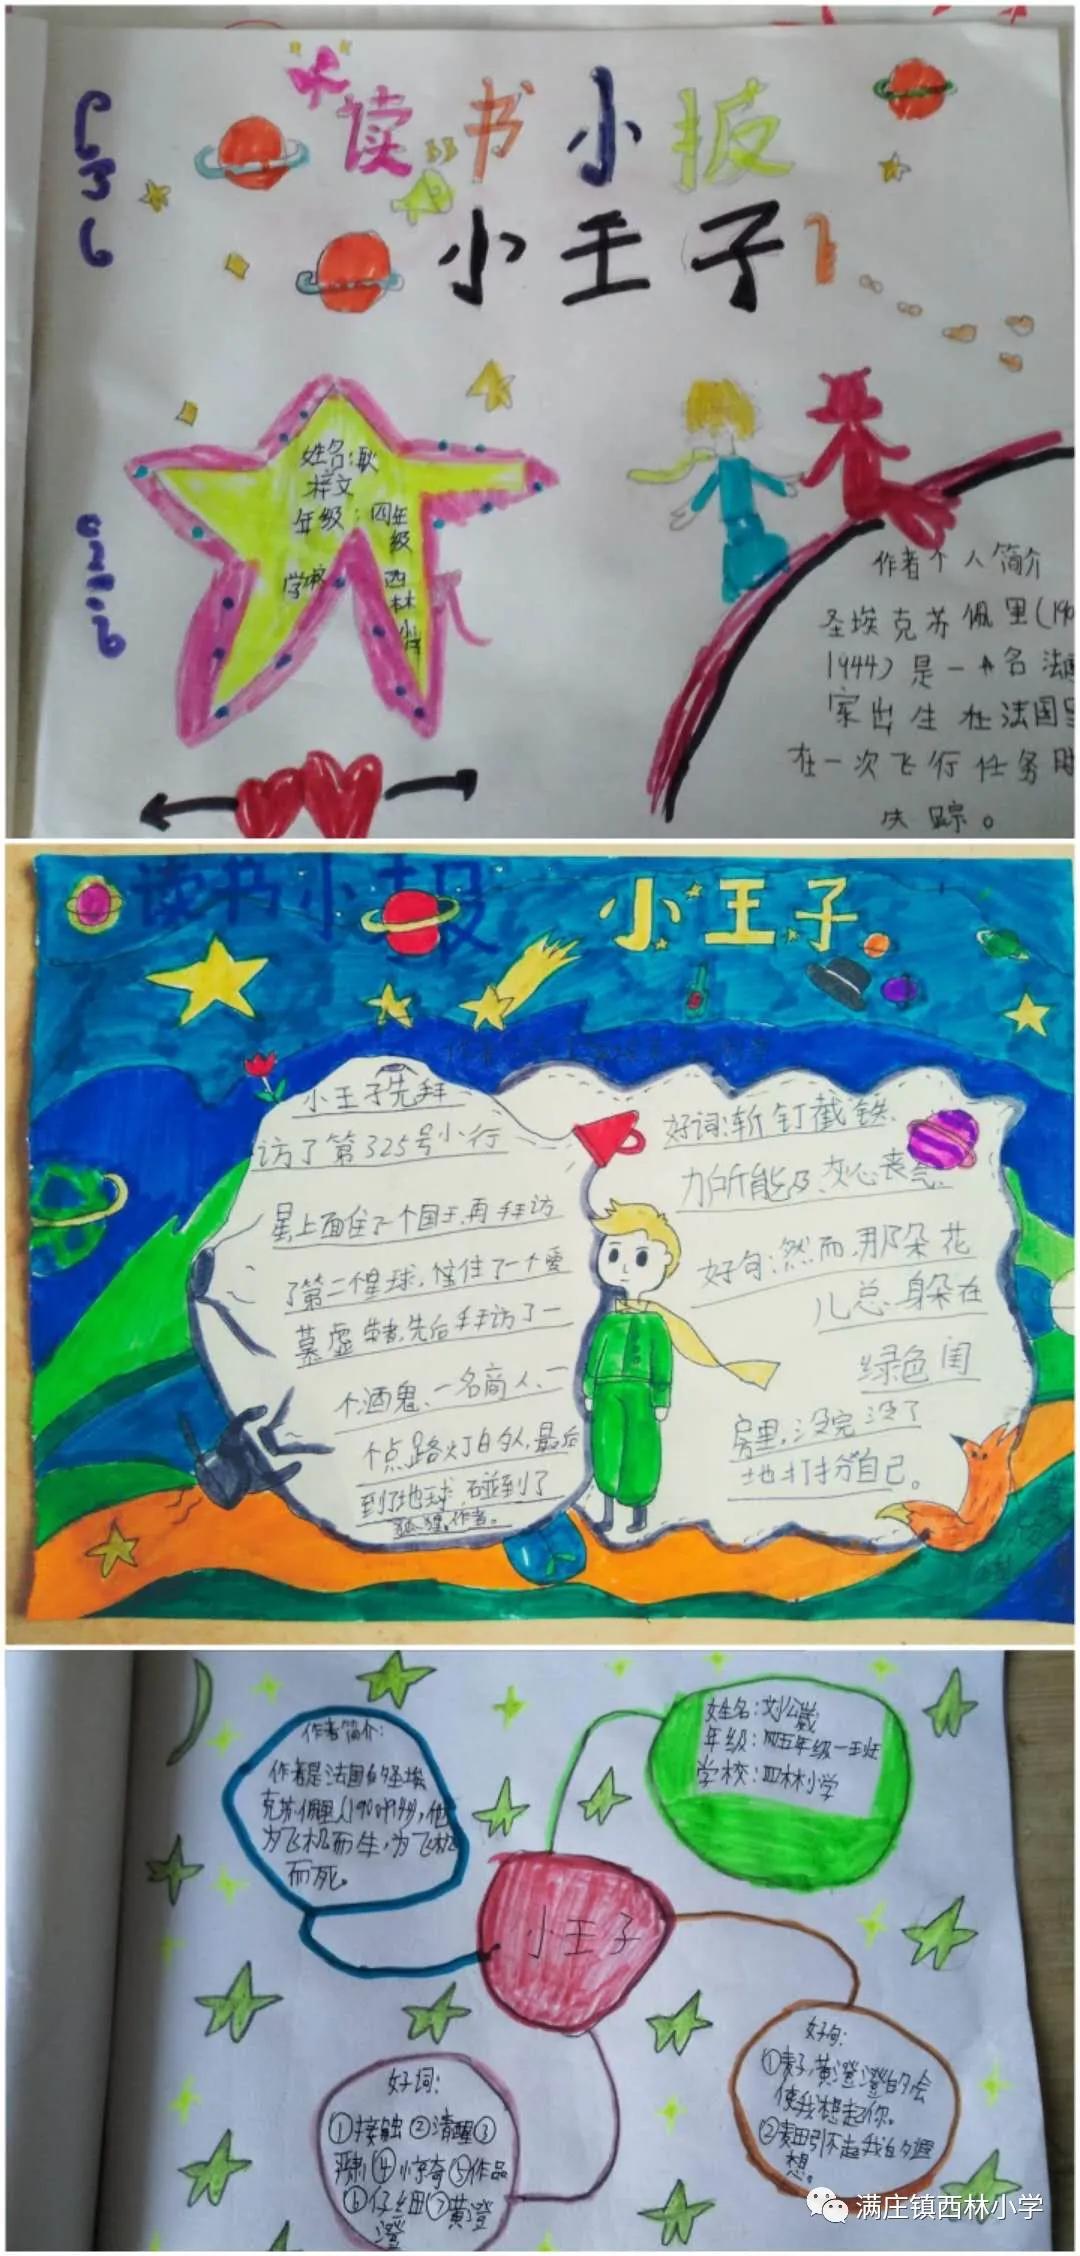 读书小报
小王子
姓名:耿
梓文
年级:四年
级
学校
西
林
小学
作者个人简介
圣埃克苏佩里(190
1944)是一名法国
家出生在法国里
在一次飞行任务时
失踪。
读书小报
小王子
小王子先拜
访了第325号小行
星上面住了一个国王,再拜访
了第二个星球,住了一个爱
慕虚荣者,先后拜访了一
个酒鬼、一名商人、一
个点路灯的人,最后
到了地球,碰到了
狐狸,作者。
好词:斩钉截铁、
力所能及、灰心丧气、
好句:然而,那朵花
儿总躲在
绿色闺
房里,没完没了
地打扮自己。
作者简介:
作者是法国的圣埃
克苏佩里(1900-1944),他
为飞机而生,为飞机
而死。
姓名:刘
年级:五年级一班
学校:西林小学
小王子
好词:
①接触②清醒③
严肃④惊奇⑤作品
⑥仔细⑦黄澄
澄
好句:
①麦子,黄澄澄的,会
使我想起你。
②麦田引不起我的遐
想。
满庄镇西林小学